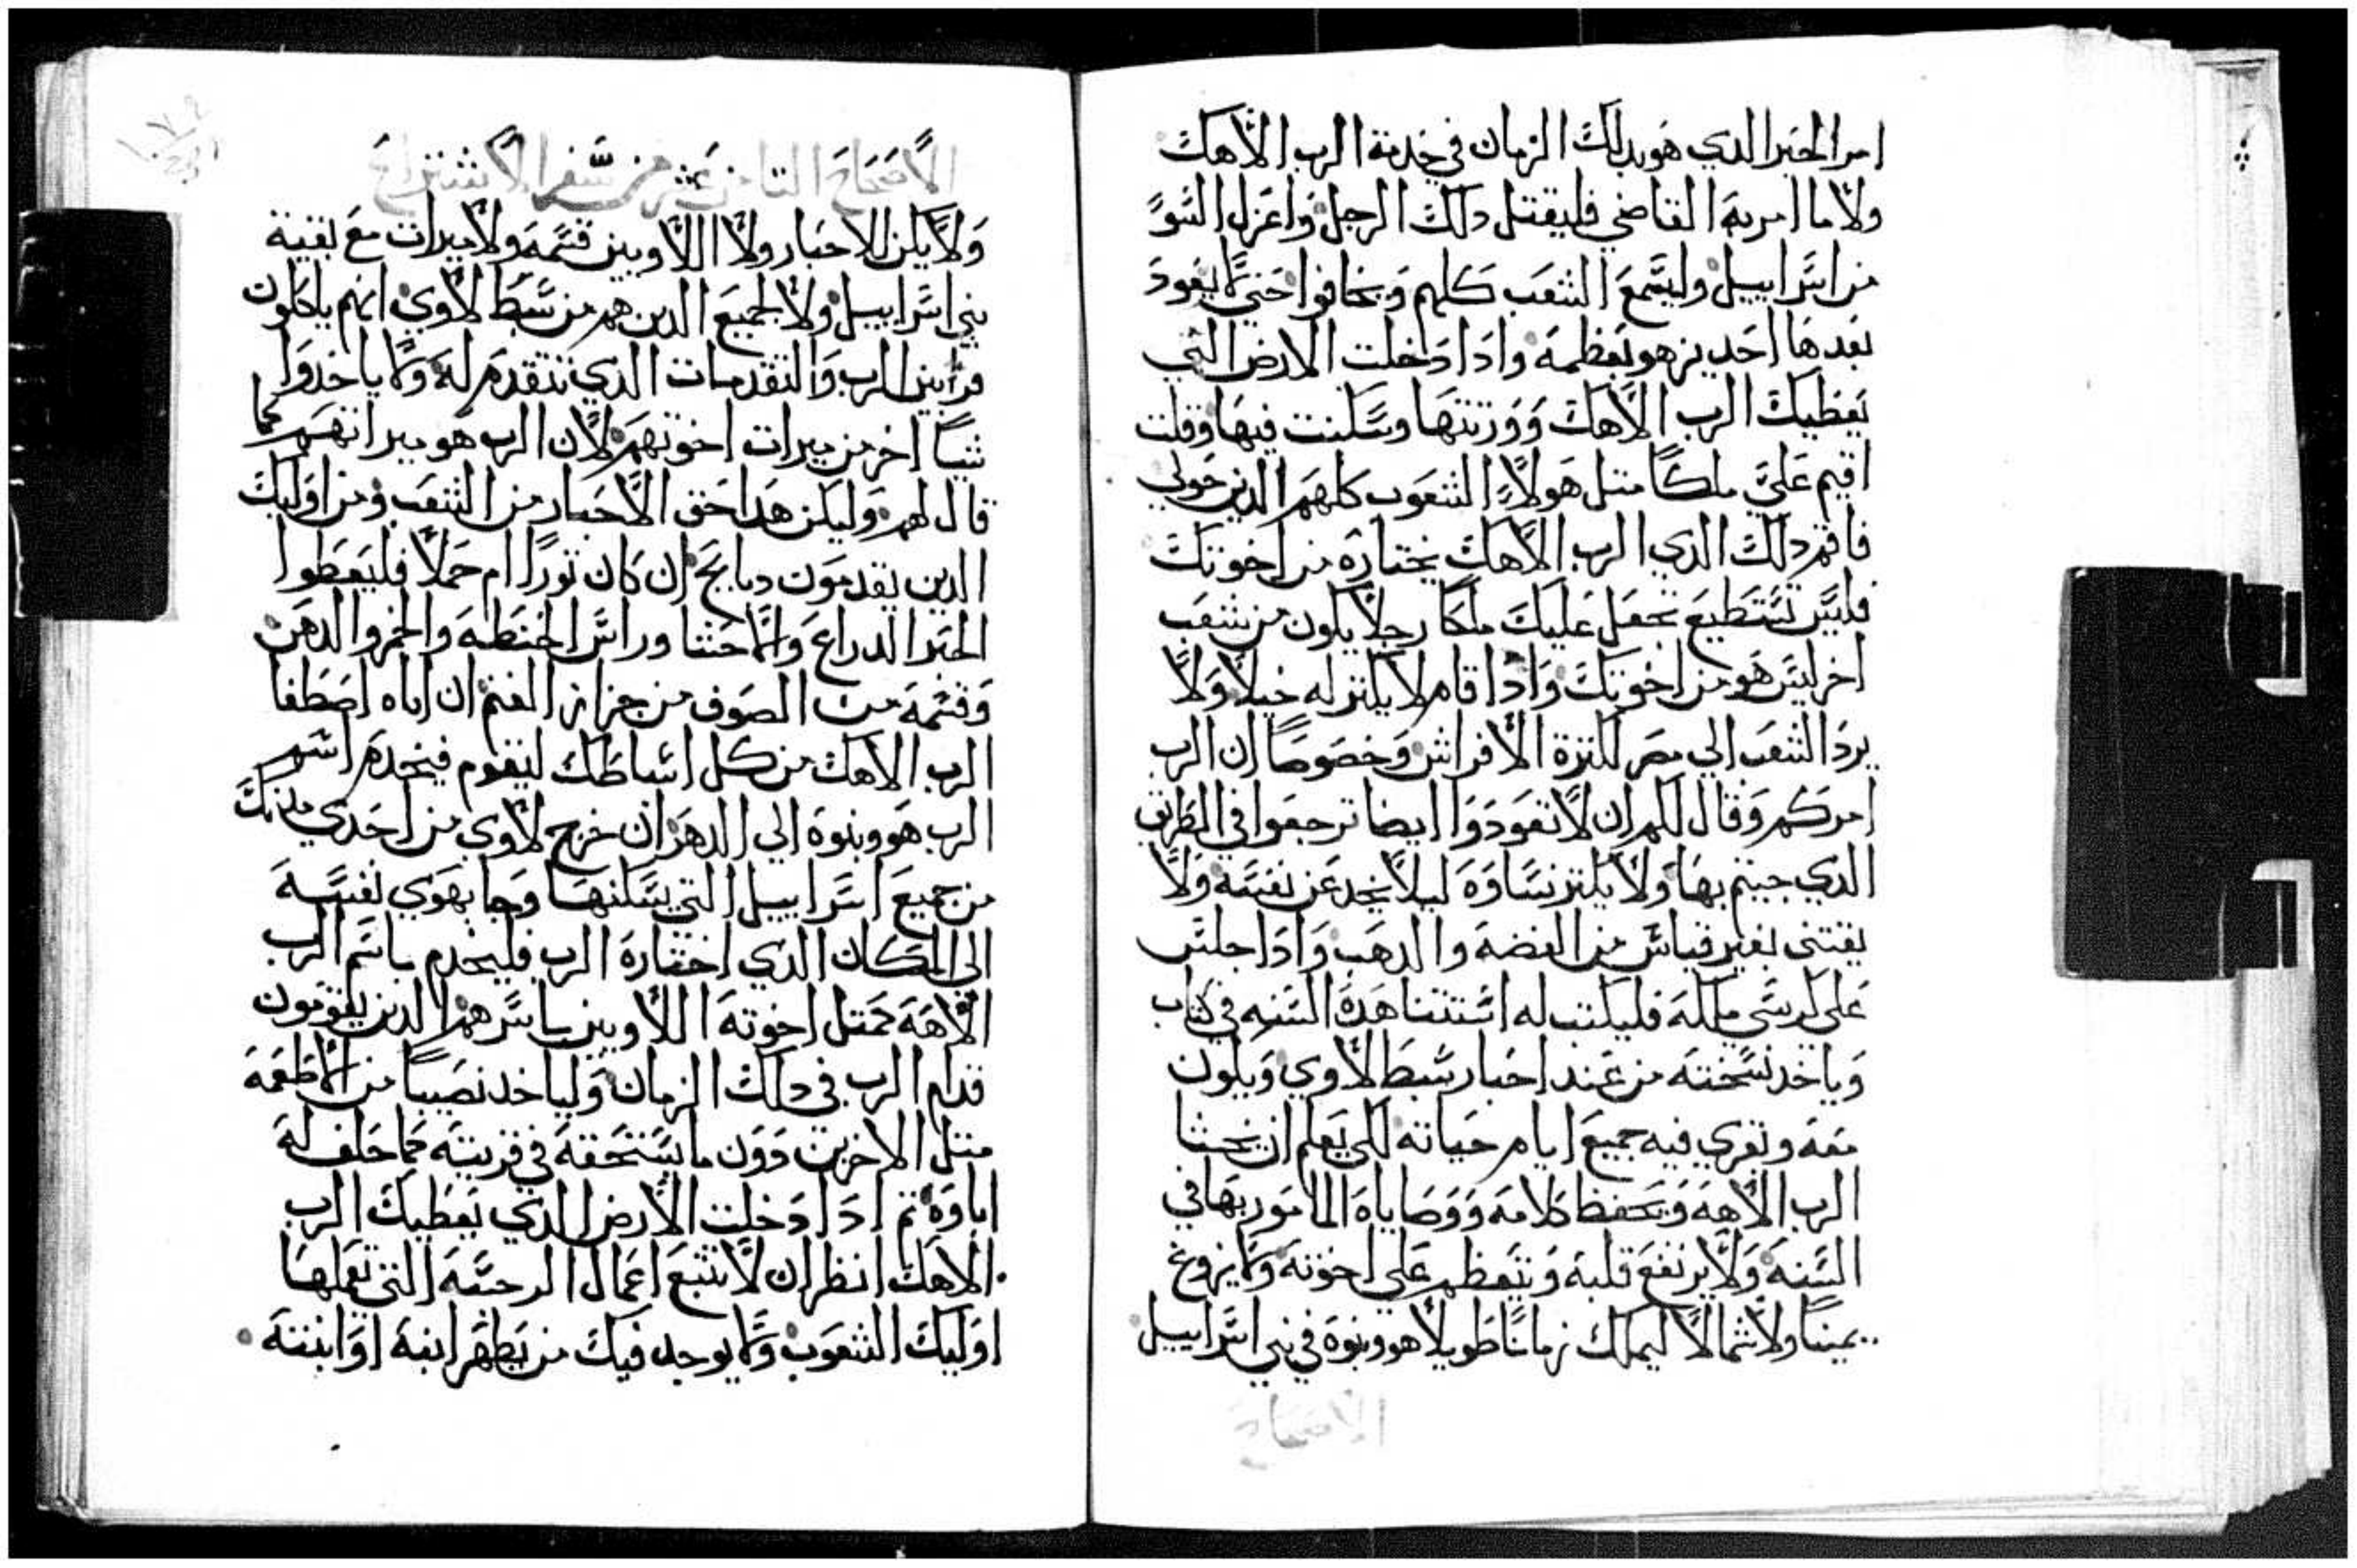 امر الحبر الدي هو بدلك الزمان في خدمة الرب الاهك
ولا ما امر به القاضي فليقتل دلك الرجل واعزل السو
من اسراييل وليسمع الشعب كلهم ويخافوا حتي لا يعود
بعدها احد يزهو بعظمه وادا دخلت الارض التي
يعطيك الرب الاهك وورثتها وسكنت فيها وقلت
اقيم علي ملكا متل هولاء الشعوب كلهم الدين حولي
فاقم دلك الدي الرب الاهك يختاره من اخوتك
فليس تستطيع تجعل عليك ملكا رجلا يكون من شعب
اخر ليس هو من اخوتك وادا قام لا يكتر له خيلا ولا
يرد الشعب الي مصر لكترة الافراس وخصوصا ان الرب
امركم وقال لكم ان لا تعودوا ايضا ترجعوا في الطريق
الدي جيتم بها ولا يكتر نساوه ليلا يخدعن نفسه ولا
يقتني بغير قياس من الفضه والدهب وادا جلس
علي كرسي ملكه فليكتب له استتنا هده السنه في كتاب
وياخد نسخته من عند احبار سبط لاوي ويكون
معه وتقري فيه جميع ايام حياته لكي يعلم ان يخشا
الرب الاهه ويحفظ كلامه ووصاياه المامور بها في
السنه ولا يرتفع قلبه ويتعظم علي اخوته ولا يزوغ
يمينا ولا شمالا ليملك زمانا طويلا هو وبنوه في بني اسراييل
الاصحاح
الاصحاح التامن عشر من سفر الاستتراع
ولا يكن للاحبار ولا اللاويين قسمه ولا ميرات مع بقية
بني اسراييل ولا لجميع الدين هم من سبط لاوي انهم ياكلون
قرابين الرب والتقدمات الدي تتقدم له ولا ياخدوا
شيا اخر من ميرات اخوتهم لان الرب هو ميراتهم كما
قال لهم وليكن هدا حق الاحبار من الشعب ومن اوليك
الدين يقدمون دبايح ان كان تورا ام حملا فليعطوا
الحبر الدراع والاحشا وراس الحنطه والخمر والدهن
وقسمه من الصوف من جزاز الغنم ان اياه اصطفا
الرب الاهك من كل اسباطك ليقوم فيخدم اسم
الرب هو وبنوه الي الدهر ان خرج لاوي من احدي مدنك
من جميع اسراييل التي يسكنها وجا بهوي نفسه
الي المكان الدي اختاره الرب فليخدم باسم الرب
الاهه كمتل اخوته اللاويين باسرهم الدين يقومون
قدام الرب في دلك الزمان ولياخد نصيبا من الاطعمه
متل الاخرين دون ما يستحقه في قريته مما خلف له
اباوه تم ادا دخلت الارض الدي يعطيك الرب
الاهك انظر ان لا تتبع اعمال الرجسه التي تعملها
اوليك الشعوب ولا يوجد فيك من يطهر ابنه او ابنته